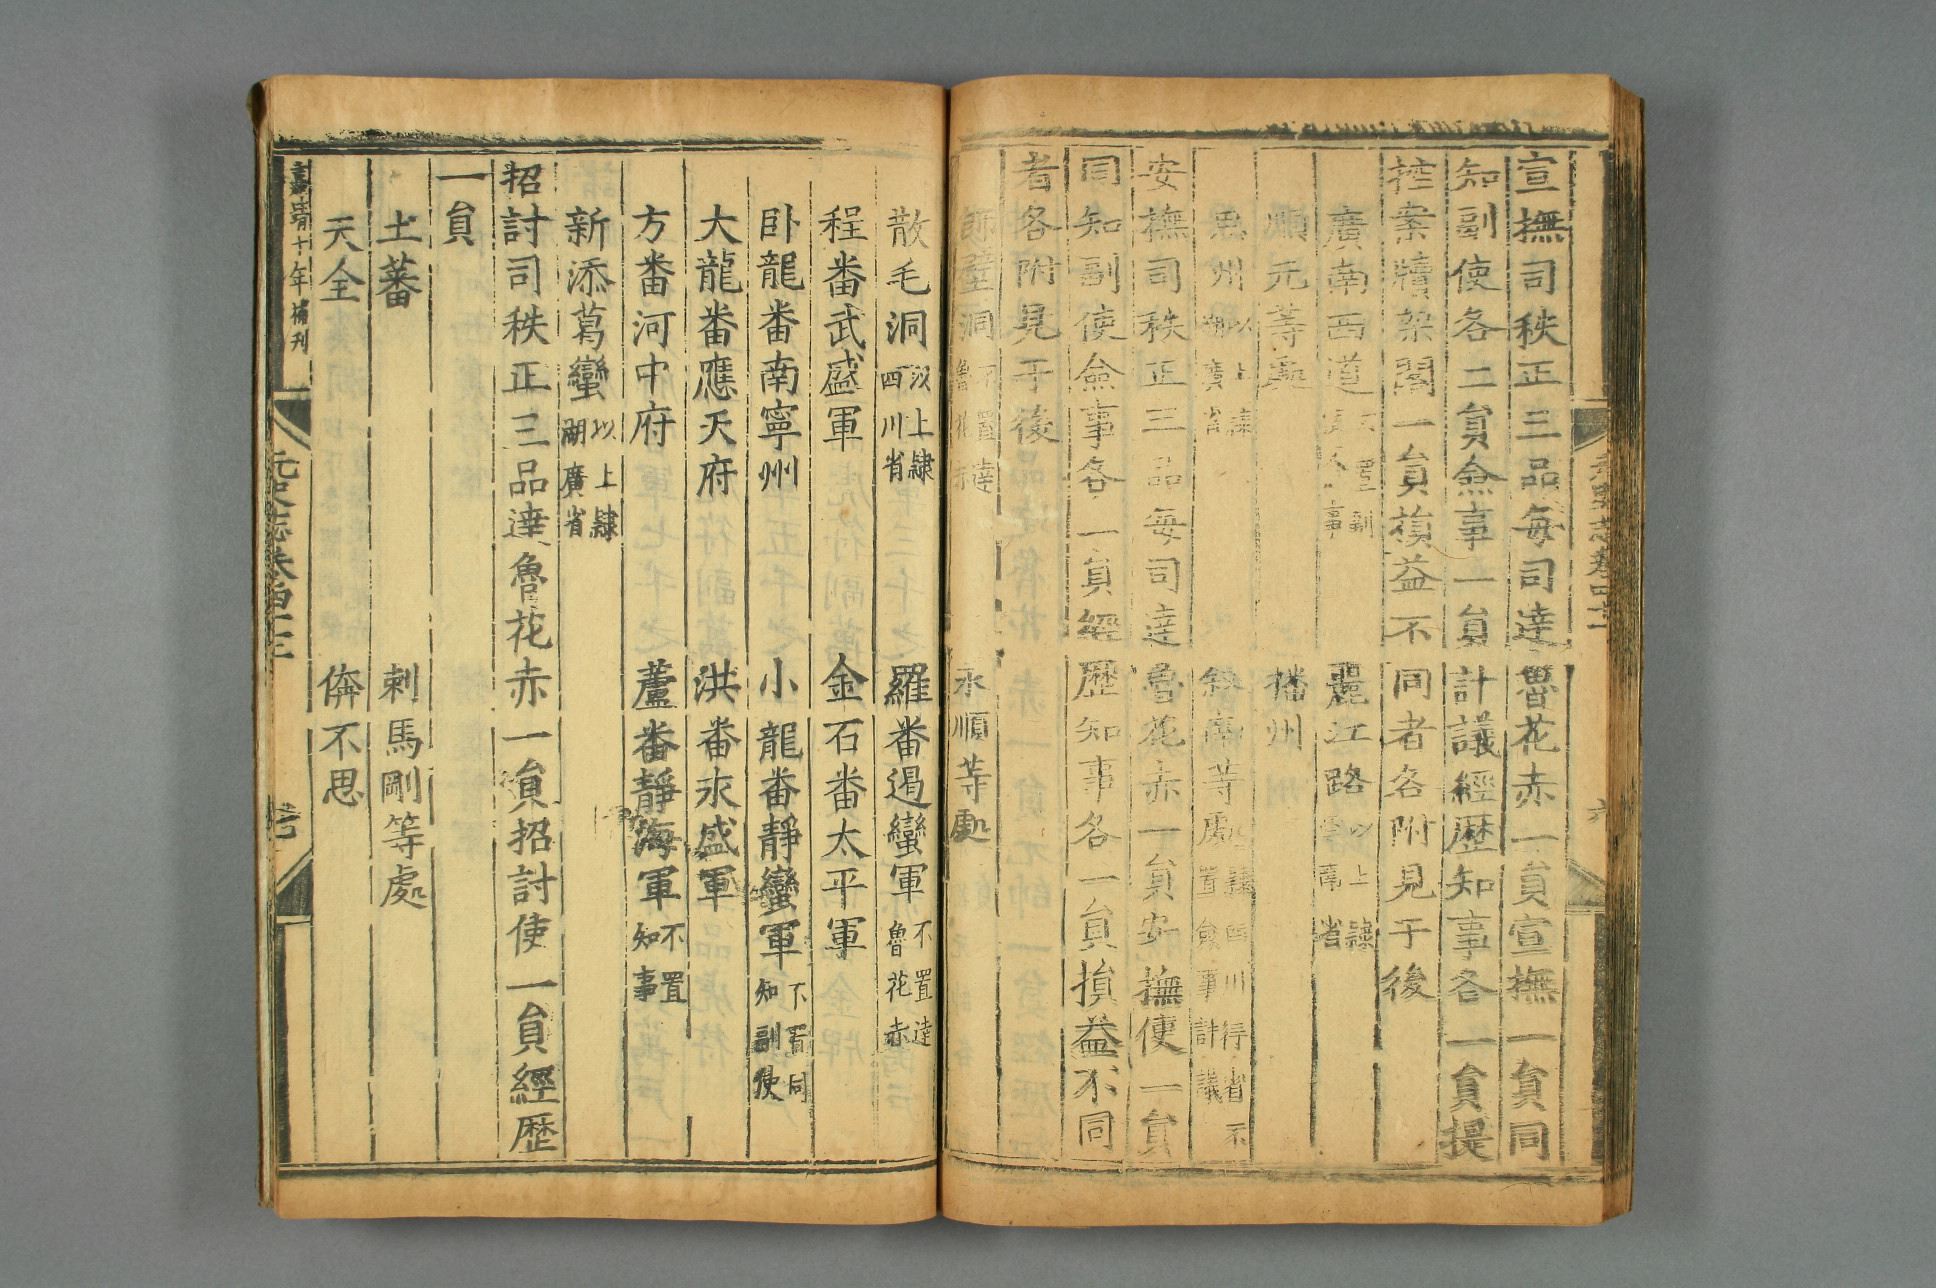 宣撫司秩正三品每司達魯花赤一員宣撫一員同
知副使各二員僉事一員計議經歷知事各一員提
控案牘架閣一員損益不同者各附見于後
廣南西道 麗江路
順元等處 播州
思州以上隸湖廣省 敘南等處隸四川行省不置僉事計議
安撫司秩正三品每司達魯花赤一員安撫使一員
同知副使僉事各一員經歷知事各一員損益不同
者各附見于後
師壁洞不置達魯花赤 永順等處
散毛洞以上隸四川省 羅番遏蠻軍不置達魯花赤
程番武盛軍 金石番太平軍
臥龍番南寧州 小龍番靜蠻軍不置同知副使
大龍番應天府 洪番永盛軍
方番河中府 蘆番靜海軍不置知事
新添葛蠻以上隸湖廣省
招討司秩正三品達魯花赤一員招討使一員經歷
一員
土蕃 剌馬剛等處
天全 倴不思
嘉靖十年補刊
元史志卷四十一